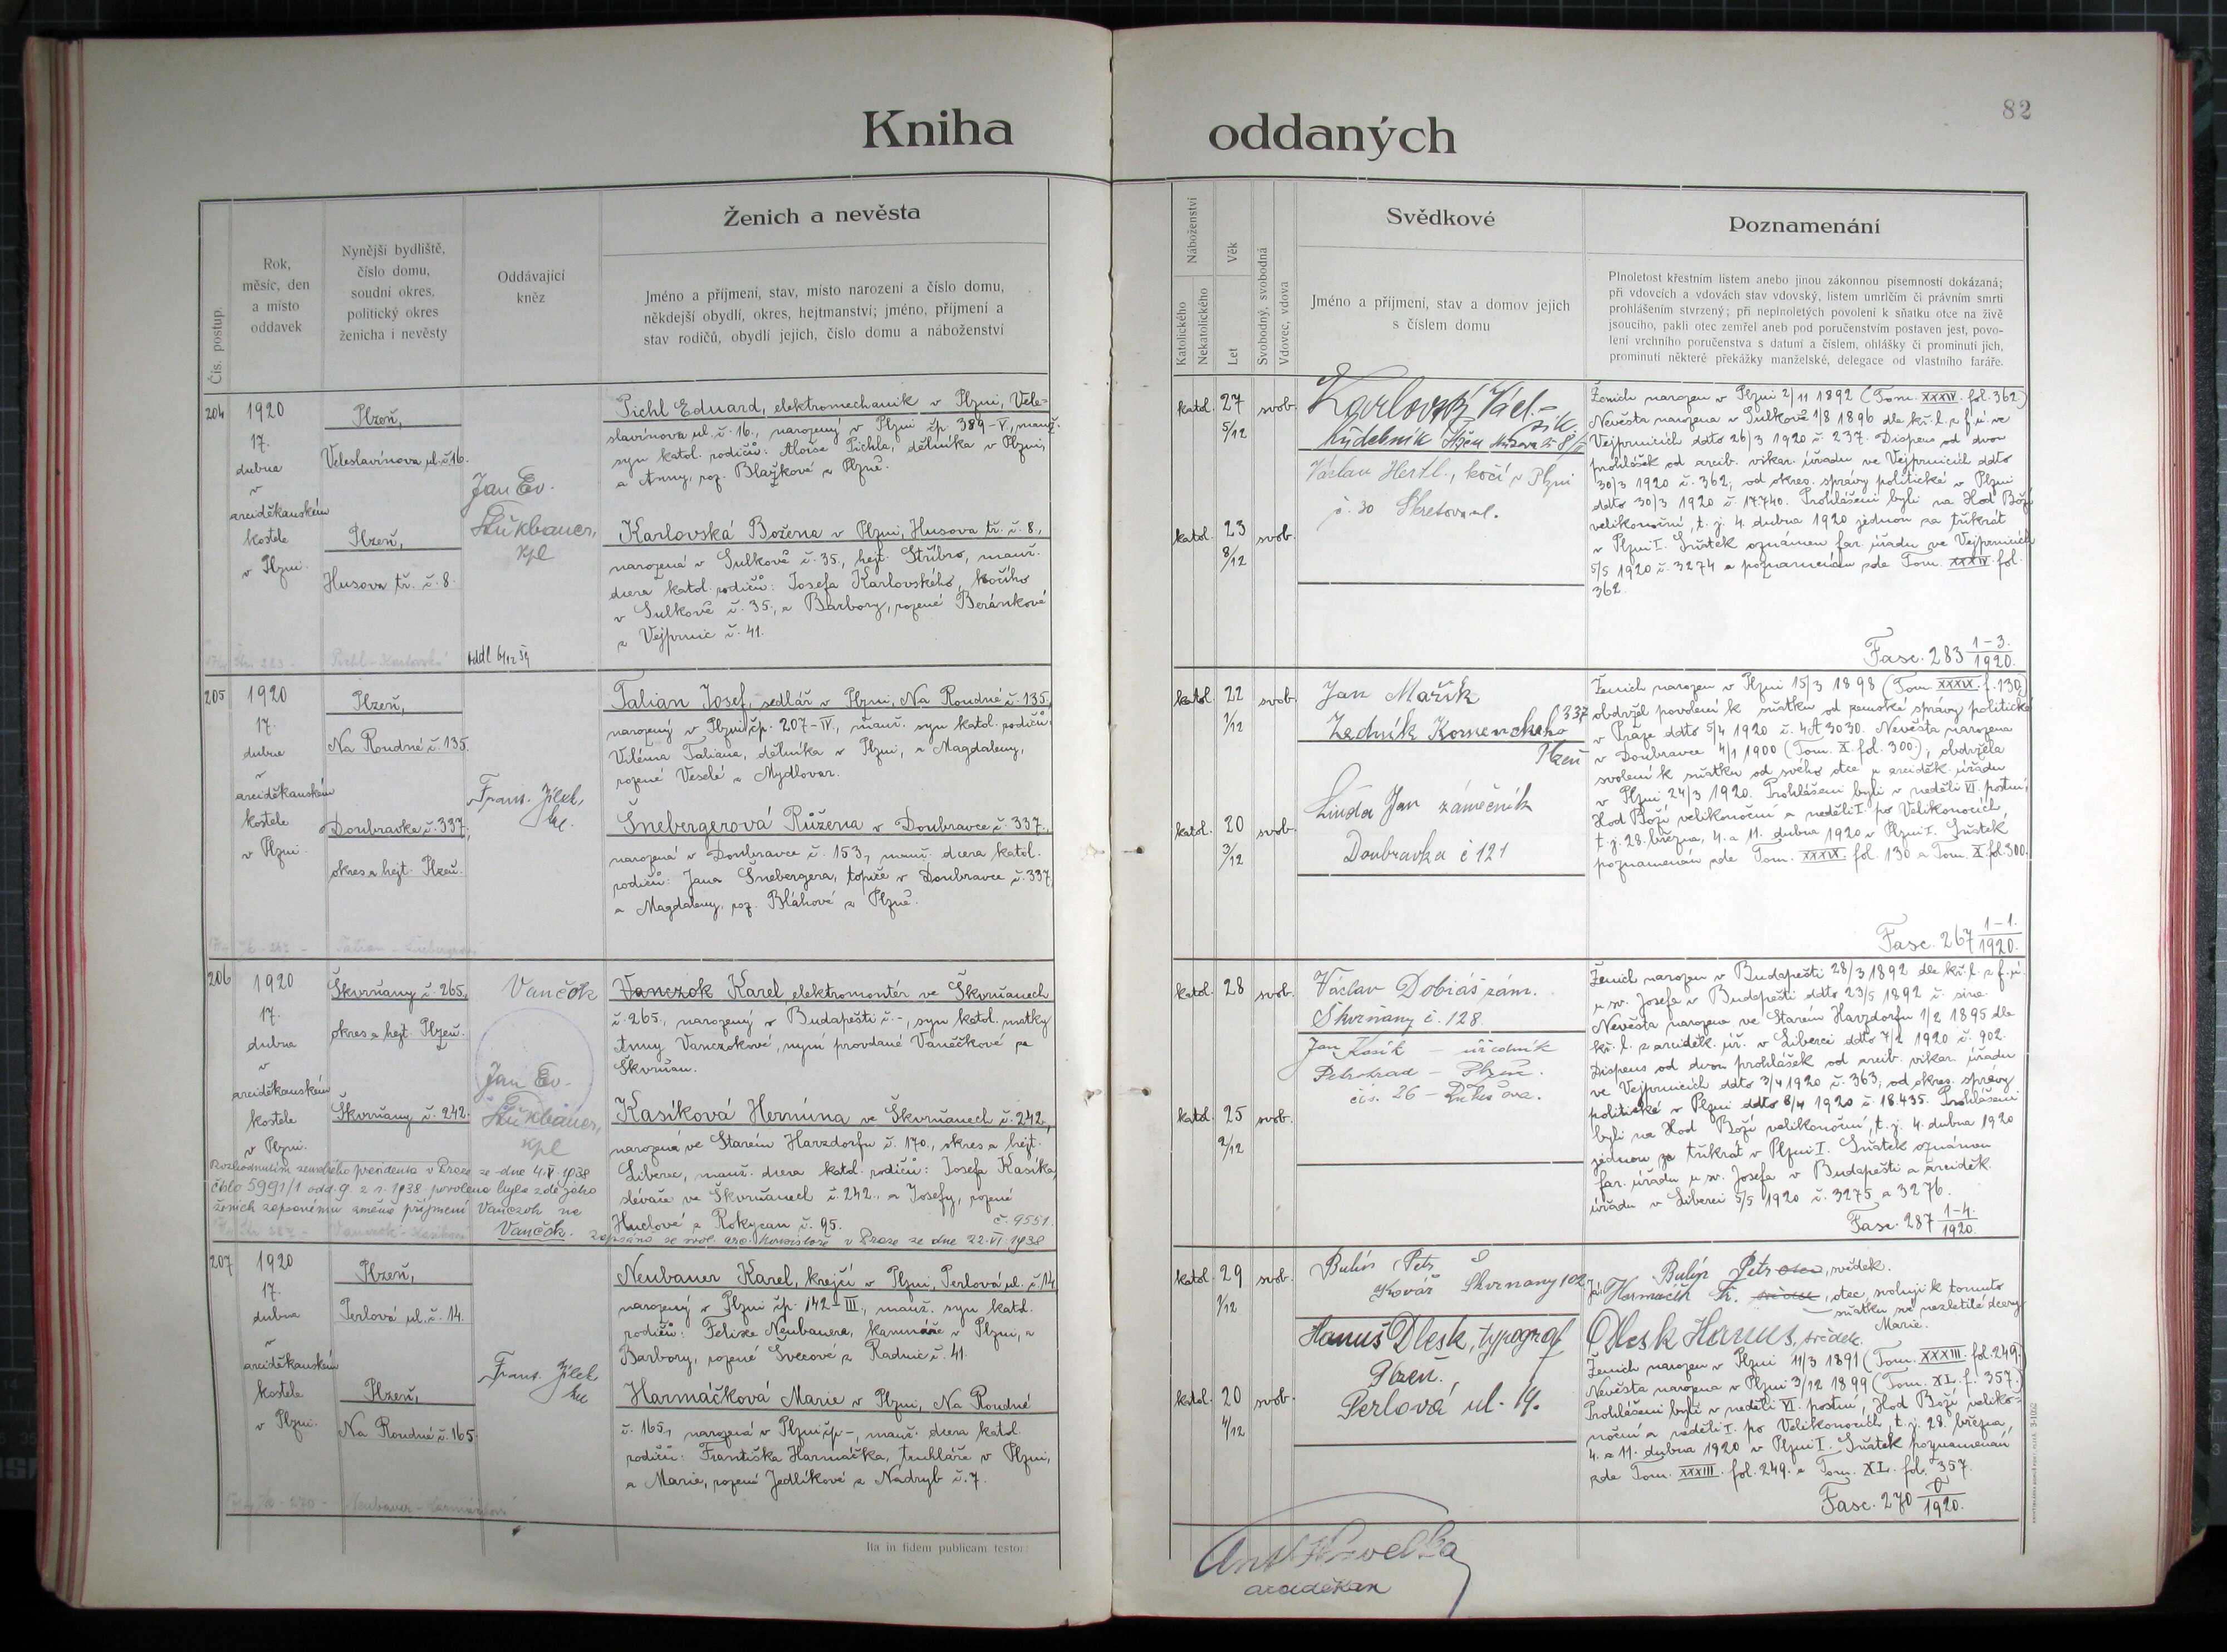 82
Kniha oddaných
Čís. postup.
Rok,
měsíc, den
a místo
oddavek
Nynější bydliště,
číslo domu,
soudní okres,
politický okres
ženicha i nevěsty
Oddávající
kněz
Ženich a nevěsta
Jméno a příjmení, stav, místo narození a číslo domu,
někdejší obydlí, okres, hejtmanství; jméno, příjmení a
stav rodičů, obydlí jejich, číslo domu a náboženství
Náboženství
Katolického
Nekatolického
Věk
Let
Svobodný, svobodná
Vdovec, vdova
Svědkové
Jméno a příjmení, stav a domov jejich
s číslem domu
Poznamenání
Plnoletost křestním listem anebo jinou zákonnou písemností dokázaná;
při vdovcích a vdovách stav vdovský, listem umrlčím či právním smrti
prohlášením stvrzený; při neplnoletých povolení k sňatku otce na živě
jsoucího, pakli otec zemřel aneb pod poručenstvím postaven jest, povo-
lení vrchního poručenstva s datum a číslem, ohlášky či prominutí jich,
prominutí některé překážky manželské, delegace od vlastního faráře.
204
1920
17.
dubna
v
arciděkanském
kostele
v Plzni.
Plzeň,
Veleslavínova ul. č. 16.
Plzeň,
Husova tř. č. 8.
Jan Ev.
kpl
Pichl Eduard, elektromechanik v Plzni, Vele-
slavínova ul. č. 16., narozený v Plzni čp. 389-V, manž.
syn katol. rodičů: Aloise Pichla, dělníka v Plzni,
a Anny, roz. Blažkové z Plzně.
Karlovská Božena v Plzni, Husova tř. č. 8.,
narozená v Sulkově č. 35., hejt. Stříbro, manž.
dcera katol. rodičů: Josefa Karlovského, kočího
v Sulkově č. 35., a Barbory, rozené Beránkové
z Vejprnic č. 41.
katol. 27 5/12 svob.
katol. 23 8/12 svob.
Karlovský Václ.
Václav Hertl, kočí v Plzni
č. 30 Skretova ul.
Ženich narozen v Plzni 2/11 1892 (Tom. XXXIV. fol. 362)
Nevěsta narozena v Sulkově 1/8 1896 dle kř. l. z f. ú. ve
Vejprnicích ddto 26/3 1920 č. 237. Dispens od dvou
prohlášek od arcib. vikar. úřadu ve Vejprnicích ddto
30/3 1920 č. 362, od okres. správy politické v Plzni
ddto 30/3 1920 č. 17.740. Prohlášeni byli na Hod Boží
velikonoční, t. j. 4. dubna 1920 jednou za třikrát
v Plzni I. Sňatek oznámen far. úřadu ve Vejprnicích
5/5 1920 č. 3274 a poznamenán zde Tom. XXXIV. fol.
362.
Fasc. 283 1-3./1920.
205
1920
17.
dubna
v
arciděkanském
kostele
v Plzni.
Plzeň,
Na Roudné č. 135.
Doubravka č. 337,
okres a hejt. Plzeň.
Frant. Jílek,
Talian Josef, sedlář v Plzni, Na Roudné č. 135,
narozený v Plzni čp. 207-IV, manž. syn katol. rodičů:
Viléma Taliana, dělníka v Plzni, a Magdaleny,
rozené Veselé z Mydlovar.
Šnebergerová Růžena v Doubravce č. 337.,
narozená v Doubravce č. 153, manž. dcera katol.
rodičů: Jana Šnebergera, topiče v Doubravce č. 337,
a Magdaleny, roz. Bláhové z Plzně.
katol. 22 1/12 svob.
katol. 20 3/12 svob.
Jan Mařík
Zedník Komenskeho 337
Plzeň
Jan zámečník
Doubravka č 121
Ženich narozen v Plzni 15/3 1898 (Tom. XXXIX. f. 130)
obdržel povolení k sňatku od zemské správy politické
v Praze ddto 5/4 1920 č. 4A 3030. Nevěsta narozena
v Doubravce 4/1 1900 (Tom. X. fol. 300.); obdržela
svolení k sňatku od svého otce u arciděk. úřadu
v Plzni 24/3 1920. Prohlášeni byli v neděli VI. postní,
Hod Boží velikonoční a neděli I. po Velikonocích,
t. j. 28. března, 4. a 11. dubna 1920 v Plzni I. Sňatek
poznamenán zde Tom. XXXIX. fol. 130 a Tom. X. fol. 300.
Fasc. 267 1-1./1920.
206
1920
17.
dubna
v
arciděkanském
kostele
v Plzni.
Škvrňany č. 265.,
okres a hejt. Plzeň.
Škvrňany č. 242.
Vančok
Jan Ev.
kpl
Vanczok Karel, elektromontér ve Škvrňanech
č. 265., narozený v Budapešti č. -, syn katol. matky
Anny Vanczokové, nyní provdané Vaněčkové ze
Škvrňan.
Kasíková Hermína ve Škvrňanech č. 242,
narozená ve Starém Harzdorfu č. 170., okres a hejt.
Liberec, manž. dcera katol. rodičů: Josefa Kasíka,
slévače ve Škvrňanech č. 242., a Josefy, rozené
Huclové z Rokycan č. 95.
Rozhodnutím zemského presidenta v Praze ze dne 4.V.1938
číslo 5991/1 odd. 9. z r. 1938 povolena byla zde jako
ženich zapsanému změna příjmení Vanczok na
Vančok. zapsáno se svol. arc. konsistoře v Praze ze dne 22.VI.1938
č. 9551.
katol. 28 svob.
katol. 25 2/12 svob.
Václav Dobiáš zám.
Škvrňany č. 128.
Jan Kasík - úředník
Petrohrad - Plzeň.
čís. 26
Ženich narozen v Budapešti 28/3 1892 dle kř. l. z f. ú.
u sv. Josefa v Budapešti ddto 23/5 1892 č. sine.
Nevěsta narozena ve Starém Harzdorfu 1/2 1895 dle
kř. l. z arciděk. úř. v Liberci ddto 7/2 1920 č. 902.
Dispens od dvou prohlášek od arcib. vikar. úřadu
ve Vejprnicích ddto 3/4 1920 č. 363, od okres. správy
politické v Plzni ddto 8/4 1920 č. 18.435. Prohlášeni
byli na Hod Boží velikonoční, t. j. 4. dubna 1920
jednou za třikrát v Plzni I. Sňatek oznámen
far. úřadu u sv. Josefa v Budapešti a arciděk.
úřadu v Liberci 5/5 1920 č. 3275 a 3276.
Fasc. 287 1-4./1920.
207
1920
17.
dubna
v
arciděkanském
kostele
v Plzni.
Plzeň,
Perlová ul. č. 14.
Plzeň,
Na Roudné č. 165.
Frant. Jílek
Neubauer Karel, krejčí v Plzni, Perlová ul. č. 14,
narozený v Plzni čp. 142-III., manž. syn katol.
rodičů: Felixe Neubauera, kamnáře v Plzni, a
Barbory, rozené Švecové z Radnic č. 41.
Harmáčková Marie v Plzni, Na Roudné
č. 165., narozená v Plzni čp. -, manž. dcera katol.
rodičů: Františka Harmáčka, truhláře v Plzni,
a Marie, rozené Jedlíkové z Nadryb č. 7.
katol. 29 1/12 svob.
katol. 20 4/12 svob.
Petr
Kovář Skvrnany 102
Hanuš Dlesk, typograf
Plzeň.
Perlová ul. 14.
Petr, svědek.
Já: Harmáčk Fr., otec, svoluji k tomuto
sňatku své nezletilé dcery
Marie.
Dlesk Hanus, svědek.
Ženich narozen v Plzni 11/3 1891 (Tom. XXXIII. fol. 249.)
Nevěsta narozena v Plzni 3/12 1899 (Tom. XL. f. 357.)
Prohlášeni byli v neděli VI. postní, Hod Boží veliko-
noční a neděli I. po Velikonocích, t. j. 28. března,
4. a 11. dubna 1920 v Plzni I. Sňatek poznamenán
zde Tom. XXXIII. fol. 249. a Tom. XL. fol. 357.
Fasc. 270 0/1920.
Ita in fidem publicam testor:
arciděkan